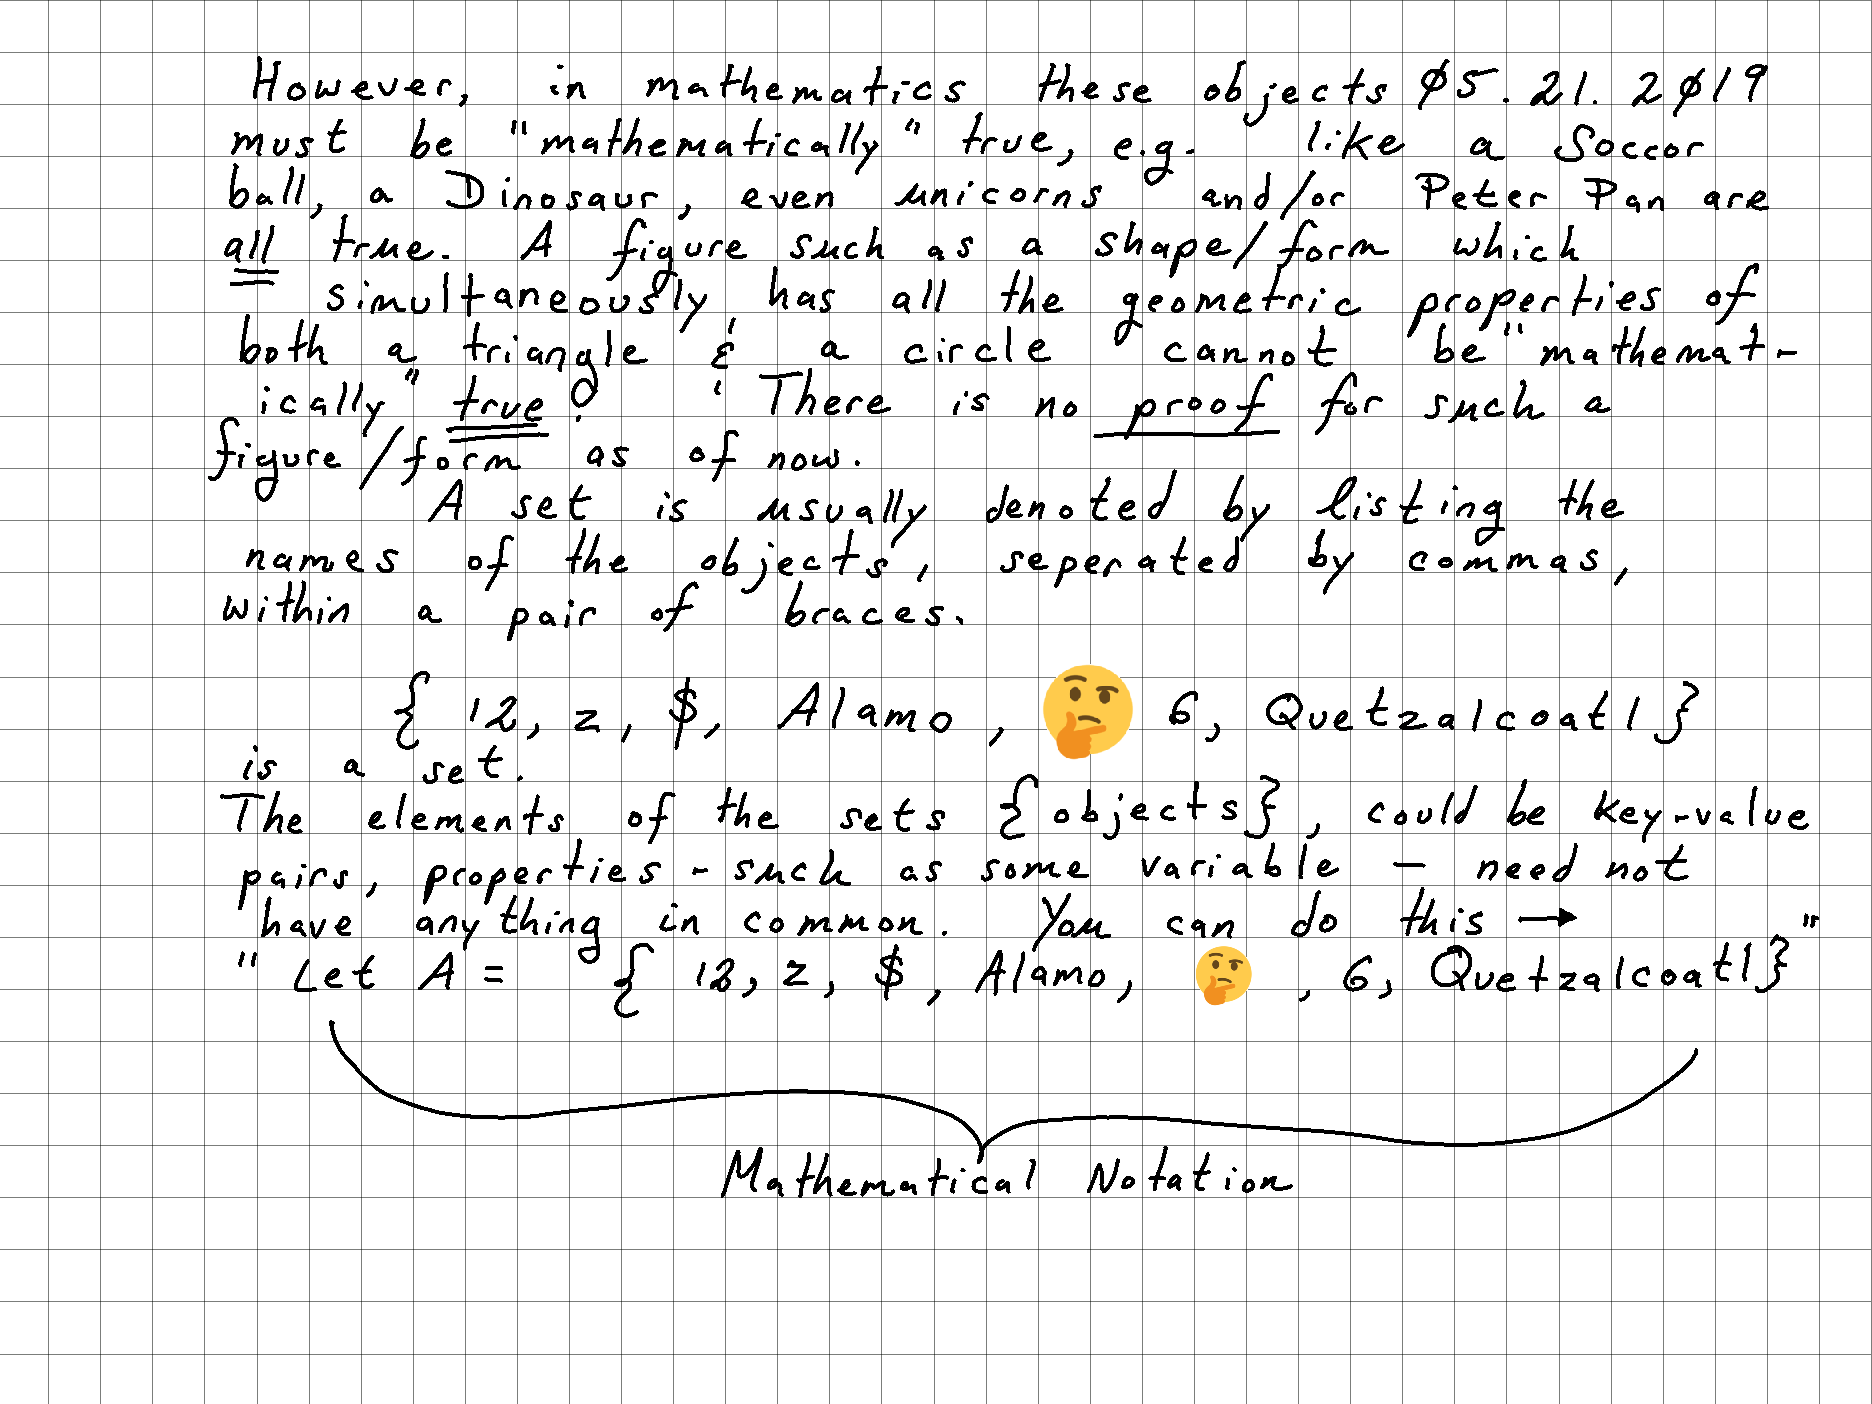 However, in mathematics these objects 05.21.2019
must be "mathematically" true, e.g. like a Soccor
ball, a Dinosaur, even unicorns and/or Peter Pan are
all true. A figure such as a shape/form which
simultaneously has all the geometric properties of
both a triangle & a circle cannot be "mathemat-
ically" true! There is no proof for such a
figure/form as of now.
A set is usually denoted by listing the
names of the objects, seperated by commas,
within a pair of braces.
{ 12, z, $, Alamo, 🤔 6, Quetzalcoatl }
is a set.
The elements of the sets {objects}, could be key-value
pairs, properties - such as some variable - need not
have anything in common. You can do this →
" Let A = { 12, z, $, Alamo, 🤔, 6, Quetzalcoatl}"
Mathematical Notation